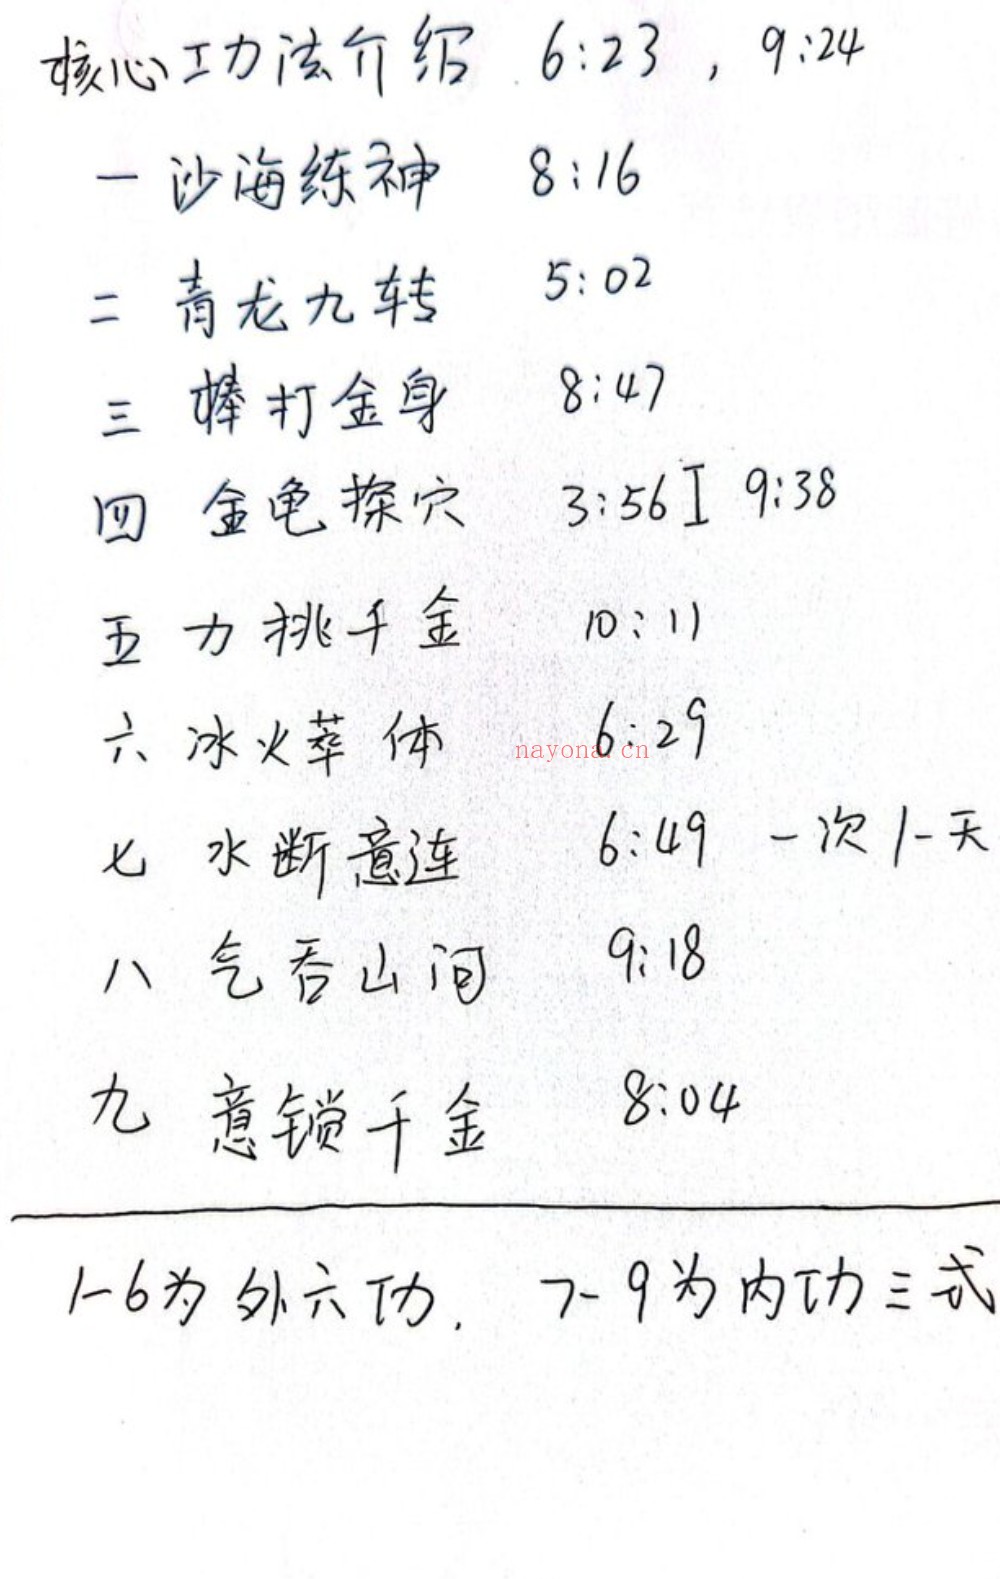 核心功法介绍 6:23，9:24
一 沙海练神 8:16
二 青龙九转 5:02
三 棒打金身 8:47
四 金龟探穴 3:56 工 9:38
五 力挑千金 10:11
六 冰火莘体 6:29
nayona.cn
七 水断意连 6:49 一次/一天
八 气吞山河 9:18
九 意锁千金 8:04
1-6为外六功. 7-9为内功三式